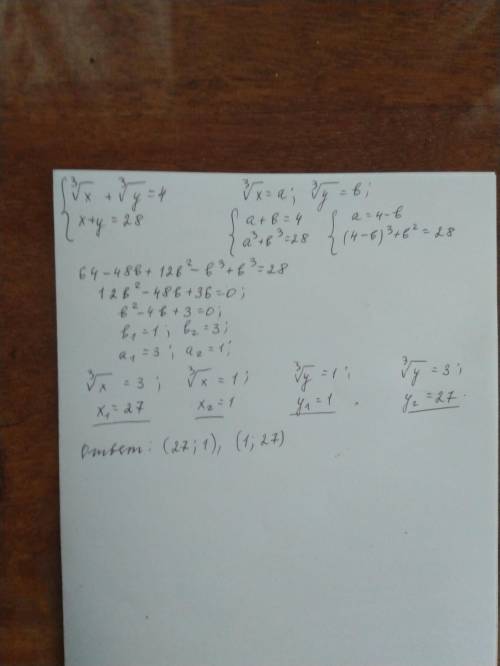 ∛x + ∛y = 4   ∛x = a; ∛y = b;
x+y = 28   { a+b = 4   { a = 4-b
a³+b³ = 28   (4-b)³+b² = 28
64-48b+12b²-b³+b³ = 28
12b²-48b+36=0;
b²-4b+3=0;
b₁=1; b₂=3;
a₁=3; a₂=1;
∛x = 3;   ∛x = 1;   ∛y = 1;   ∛y = 3;
x₁=27   x₂=1   y₁=1.   y₂=27.
Ответ: (27;1), (1;27)